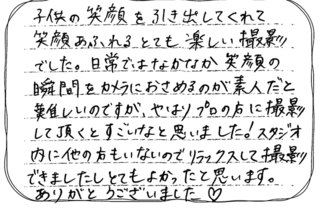 子供の笑顔を引き出してくれて
笑顔あふれるとても楽しい撮影
でした。日常ではなかなか笑顔の
瞬間をカメラにおさめるのが素人だと
難しいのですが、やはりプロの方に撮影
して頂くとすごいなと思いました!スタジオ
内に他の方もいないのでリラックスして撮影
できましたしとてもよかったと思います。
ありがとうございました♡